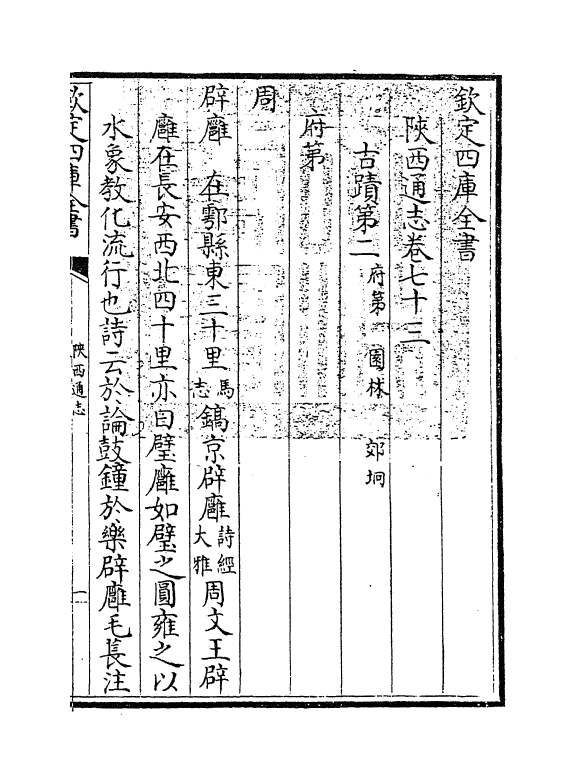 欽定四庫全書
陜西通志卷七十三
古蹟第二 府第 園林 郊坰
府第
周
辟廱 在鄠縣東三十里 馬志 鎬京辟廱 詩經大雅 周文王辟
廱在長安西北四十里亦曰璧廱如璧之圓雍之以
水象教化流行也詩云於論鼓鐘於樂辟廱毛萇注
欽定四庫全書
陜西通志
一